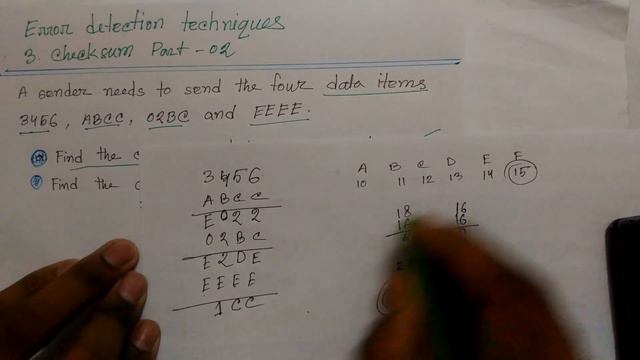 Error detection techniques
3. Checksum Part - 02
A sender needs to send the four data items
3456, ABCC, 02BC and EEEE.
Find the c
Find the c
3456
ABCC
E022
02BC
E2DE
EEEE
1CC
A B C D E F
10 11 12 13 14 15
18 16
16